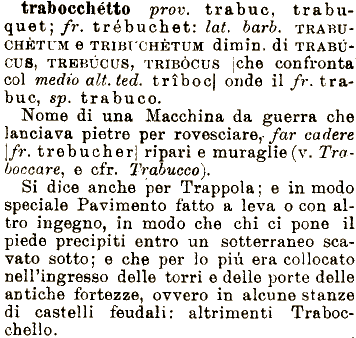 trabocchétto prov. trabuc, trabu-
quet; fr. trébuchet: lat. barb. TRABU-
CHÈTUM e TRIBUCHÈTUM dimin. di TRABÚ-
CUS, TREBÚCUS, TRIBÒCUS [che confronta
col medio alt. ted. trîboc] onde il fr. tra-
buc, sp. trabuco.
Nome di una Macchina da guerra che
lanciava pietre per rovesciare, far cadere
[fr. trebucher] ripari e muraglie (v. Tra-
boccare, e cfr. Trabucco).
Si dice anche per Trappola; e in modo
speciale Pavimento fatto a leva o con al-
tro ingegno, in modo che chi ci pone il
piede precipiti entro un sotterraneo sca-
vato sotto; e che per lo piú era collocato
nell'ingresso delle torri e delle porte delle
antiche fortezze, ovvero in alcune stanze
di castelli feudali: altrimenti Traboc-
chello.